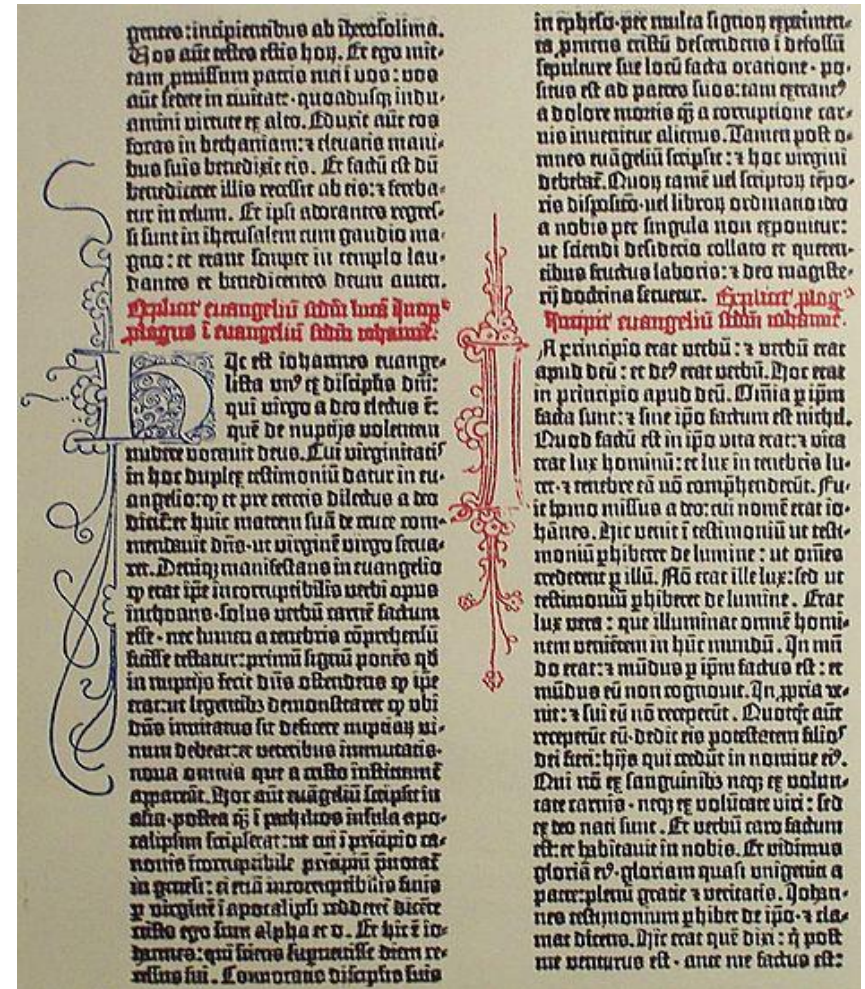 gentes: incipientibus ab iherosolima.
Vos aūt testes estis hoꝝ. Et ego mit-
tam p̄missum patris mei ī vos: vos
aūt sedete in ciuitate· quoadusqꝫ indu-
amini virtute ex alto. Eduxit aūt eos
foras in bethaniam: ⁊ eleuatis mani-
bus suis benedixit eis. Et factū est dū
benediceret illis recessit ab eis: ⁊ fereba-
tur in celum. Et ipsi adorantes regres-
si sunt in iherusalem cum gaudio ma-
gno: et erant semper in templo lau-
dantes et benedicentes deum amen.
Explicit euangeliū scdm̄ lucā Incip̄
plogus ī euangeliū scdm̄ iohannē.
Hic est iohannes euange-
lista vnꝰ ex discipłis dn̄i:
qui virgo a deo electus ē:
quē de nuptijs volentem
nubere vocauit deus. Cui virginitatꝭ
in hoc duplex testimoniū datur in eu-
angelio: ꝙ et pre ceteris dilectus a deo
dicit̄: et huic matrem suā de cruce com-
mendauit dn̄s· ut virginē virgo serua-
ret. Deniqꝫ manifestans in euangelio
ꝙ erat ip̄e incorruptibilis verbi opus
inchoans· solus verbū carnē factum
esse· nec lumen a tenebris cōprehensū
fuisse testatur: primū signū ponēs qd̄
in nuptijs fecit dn̄s ostendens ꝙ ip̄e
erat: ut legentibꝫ demonstraret ꝙ vbi
dn̄s inuitatus sit deficere nuptiaꝝ vi-
num debeat: et veteribus immutatis·
noua omnia que a cristo instituunt̄
appareāt. Hoc aūt euāgeliū scripsit in
asia· postea q̄ꝫ ī pathmos insula apo-
calipsim scripserat: ut cui ī principio ca-
nonis īcorruptibile principiū p̄notat̄
in genesi: ei etiā incorruptibilis finis
ꝑ virginē ī apocalipsi redderet̄ dicēte
cristo ego sum alpha et o. Et hic ē io-
hannes: qui sciens superuenisse diem re-
cessus sui. Conuocatis discipłis suis
in epheso· per multa signoꝝ experimen-
ta ꝓmens cristū descendens ī defossū
sepulture sue locū facta oratione· po-
situs est ad patres suos: tam extraneꝰ
a dolore mortis q̄ꝫ a corruptione car-
nis inuenitur alienus. Tamen post o-
mnes euāgeliū scripsit: ⁊ hoc virgini
debebat̄. Quoꝝ tamē uel scriptoꝝ tēpo-
ris disposicō· uel libroꝝ ordinatio ideo
a nobis per singula non exponitur:
ut sciendi desiderio collato et queren-
tibus fructus laboris: ⁊ deo magiste-
rij doctrina seruetur. Explicit plog̉
Incipit euangeliū scdm̄ iohannē.
In principio erat verbū: ⁊ verbū erat
apud deū: et deꝰ erat verbū. Hoc erat
in principio apud deū. Om̄ia ꝑ ip̄m
facta sunt: ⁊ sine ip̄o factum est nichil.
Quod factū est in ip̄o vita erat: ⁊ vita
erat lux hominū: et lux in tenebris lu-
cet· ⁊ tenebre eā nō comp̄henderūt. Fu-
it homo missus a deo: cui nomē erat io-
hānes. Hic venit ī testimoniū ut testi-
moniū ꝑhiberet de lumine: ut om̄es
crederent ꝑ illū. Nō erat ille lux: sed ut
testimoniū ꝑhiberet de lumine. Erat
lux vera: que illuminat omnē homi-
nem venientem in hūc mundū. In mū-
do erat: ⁊ mūdus ꝑ ip̄m factus est: et
mūdus eū non cognouit. In ꝓpria ve-
nit: ⁊ sui eū nō receperūt. Quotq̄t aūt
receperūt eū· dedit eis potestatem filioꝭ
dei fieri: hijs qui credūt in nomine eiꝰ.
Qui nō ex sanguinibꝫ neqꝫ ex volun-
tate carnis· neqꝫ ex volūtate viri: sed
ex deo nati sunt. Et verbū caro factum
est: et habitauit in nobis. Et vidimus
gloriā eiꝰ· gloriam quasi vnigeniti a
patre: plenū gratie ⁊ veritatis. Johan-
nes testimonium ꝑhibet de ip̄o· ⁊ cla-
mat dicens. Hic erat quē dixi: q̇ post
me venturus est· ante me factus est: